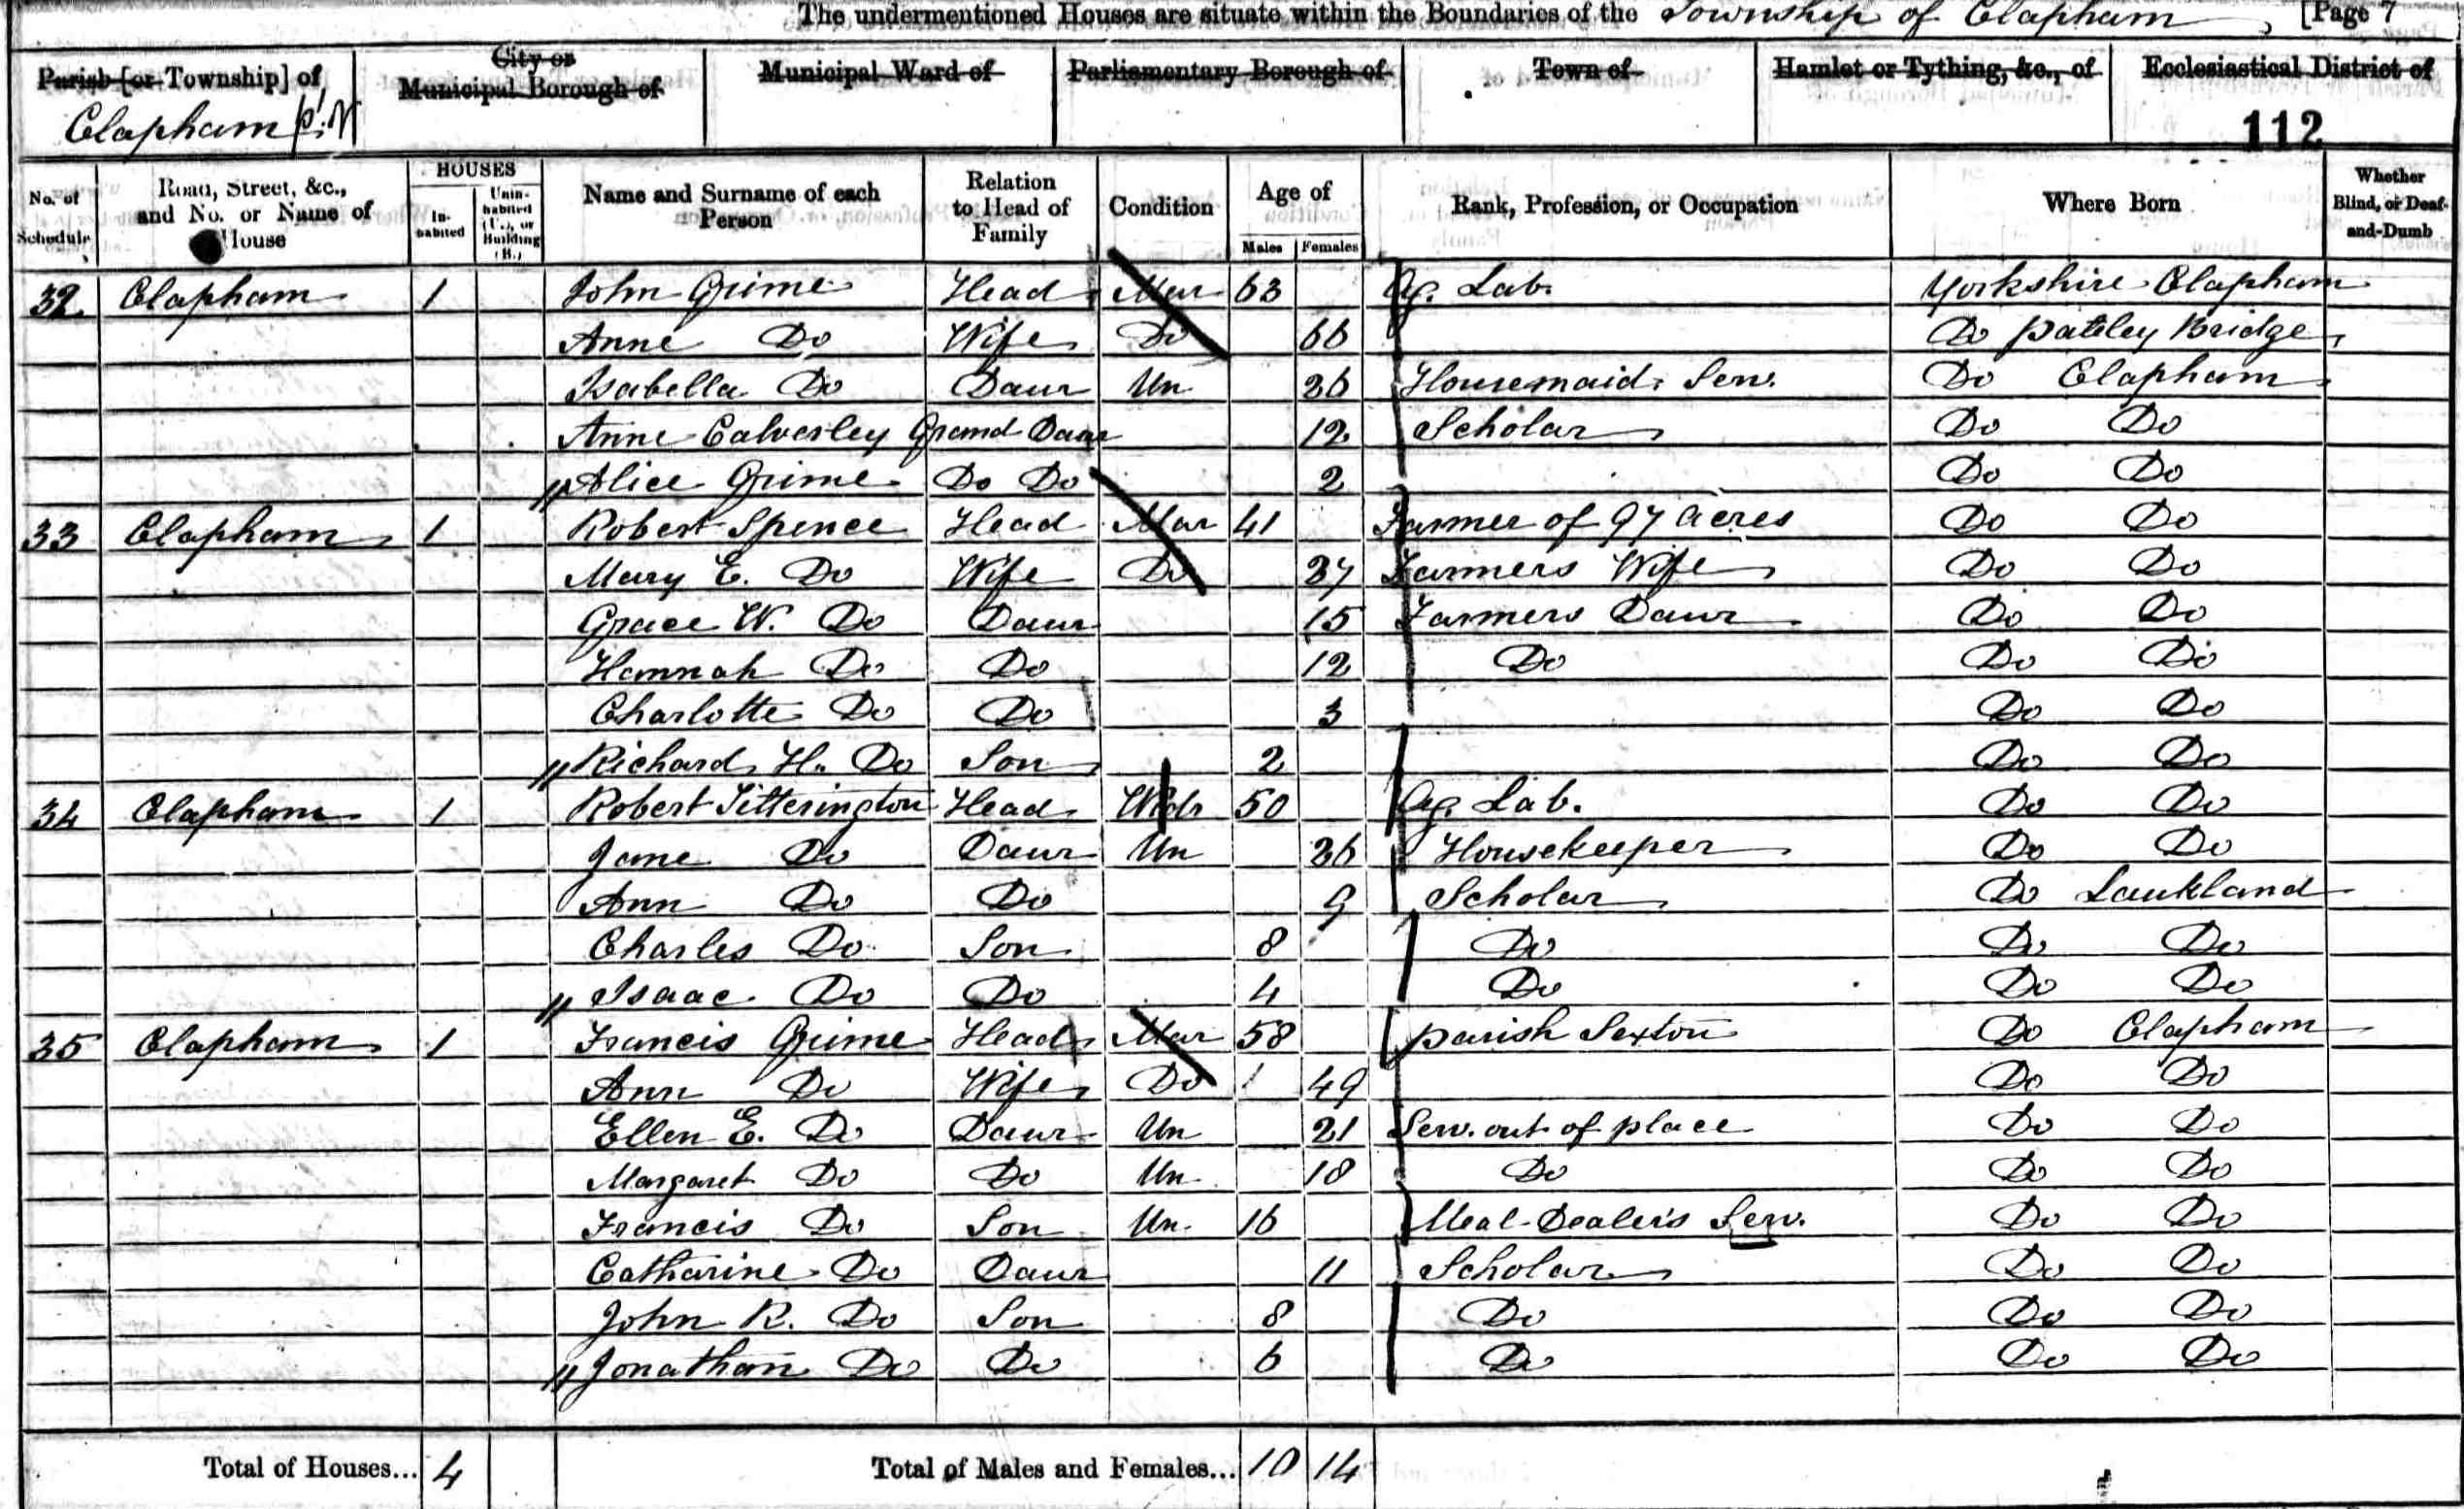 The undermentioned Houses are situate within the Boundaries of the Township of Clapham [Page 7
Parish [or Township] of City or Municipal Borough of Municipal Ward of Parliamentary Borough of Town of Hamlet or Tything, &c., of Ecclesiastical District of
Clapham pt. 112
No. of Schedule Road, Street, &c., and No. or Name of House HOUSES Inhabited Uninhabited (U.), or Building (B.) Name and Surname of each Person Relation to Head of Family Condition Age of Males Females Rank, Profession, or Occupation Where Born Whether Blind, or Deaf-and-Dumb
32 Clapham 1 John Grime Head Mar 63 Ag. Lab. Yorkshire Clapham
Anne Do Wife Do 66 Do Pateley Bridge
Isabella Do Daur Un 26 Housemaid Serv. Do Clapham
Anne Calverley Grand Daur 12 Scholar Do Do
Alice Grime Do Do 2 Do Do
33 Clapham 1 Robert Spence Head Mar 41 Farmer of 97 Acres Do Do
Mary E. Do Wife Do 37 Farmers Wife Do Do
Grace W. Do Daur 15 Farmers Daur Do Do
Hannah Do Do 12 Do Do Do
Charlotte Do Do 3 Do Do
Richard H. Do Son 2 Do Do
34 Clapham 1 Robert Titterington Head Widr 50 Ag. Lab. Do Do
Jane Do Daur Un 26 Housekeeper Do Do
Ann Do Do 9 Scholar Do Laukland
Charles Do Son 8 Do Do Do
Isaac Do Do 4 Do Do Do
35 Clapham 1 Francis Grime Head Mar 58 Parish Sexton Do Clapham
Ann Do Wife Do 49 Do Do
Ellen E. Do Daur Un 21 Serv. out of place Do Do
Margaret Do Do Un 18 Do Do Do
Francis Do Son Un 16 Meal-Dealer's Serv. Do Do
Catharine Do Daur 11 Scholar Do Do
John R. Do Son 8 Do Do Do
Jonathan Do Do 6 Do Do Do
Total of Houses... 4 Total of Males and Females... 10 14